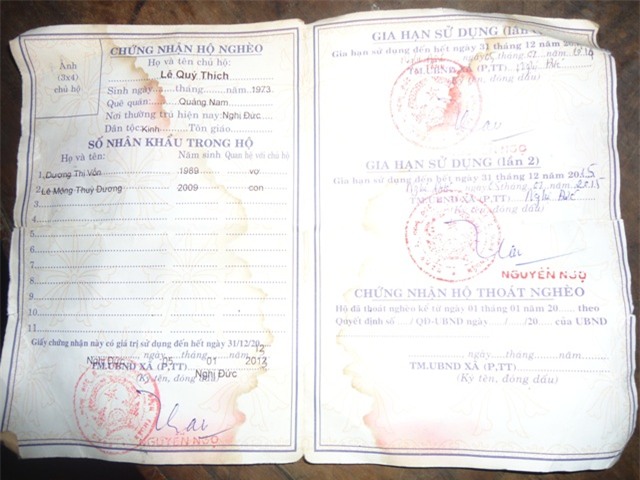 CHỨNG NHẬN HỘ NGHÈO
Ảnh
(3x4)
chủ hộ
Họ và tên chủ hộ:
Lê Quý Thích
Sinh ngày tháng năm 1973
Quê quán: Quảng Nam
Nơi thường trú hiện nay: Nghị Đức
Dân tộc: Kinh Tôn giáo
SỐ NHÂN KHẨU TRONG HỘ
Họ và tên: Năm sinh Quan hệ với chủ hộ
1. Dương Thị Vốn 1989 vợ
2. Lê Mộng Thuỳ Dương 2009 con
3
4
5
6
7
8
9
10
11
Giấy chứng nhận này có giá trị sử dụng đến hết ngày 31/12/20 12
Nghị Đức ngày 05 tháng 01 năm 2012
TM.UBND XÃ (P,TT) Nghị Đức
(Ký tên, đóng dấu)
NGUYỄN NGỌ
GIA HẠN SỬ DỤNG (lần
Gia hạn sử dụng đến hết ngày 31 tháng 12 năm 20
ngày 05 tháng 01 năm
TM.UBND XÃ (P,TT) Nghị Đức
(Ký tên, đóng dấu)
NGUYỄN NGỌ
GIA HẠN SỬ DỤNG (lần 2)
Gia hạn sử dụng đến hết ngày 31 tháng 12 năm 2015
Nghị Đức ngày 05 tháng 01 năm 2015
TM.UBND XÃ (P,TT) Nghị Đức
(Ký tên, đóng dấu)
NGUYỄN NGỌ
CHỨNG NHẬN HỘ THOÁT NGHÈO
Hộ đã thoát nghèo kể từ ngày 01 tháng 01 năm 20 theo
Quyết định số / QĐ-UBND ngày / /20 của UBND
ngày tháng năm
TM.UBND XÃ (P,TT)
(Ký tên, đóng dấu)